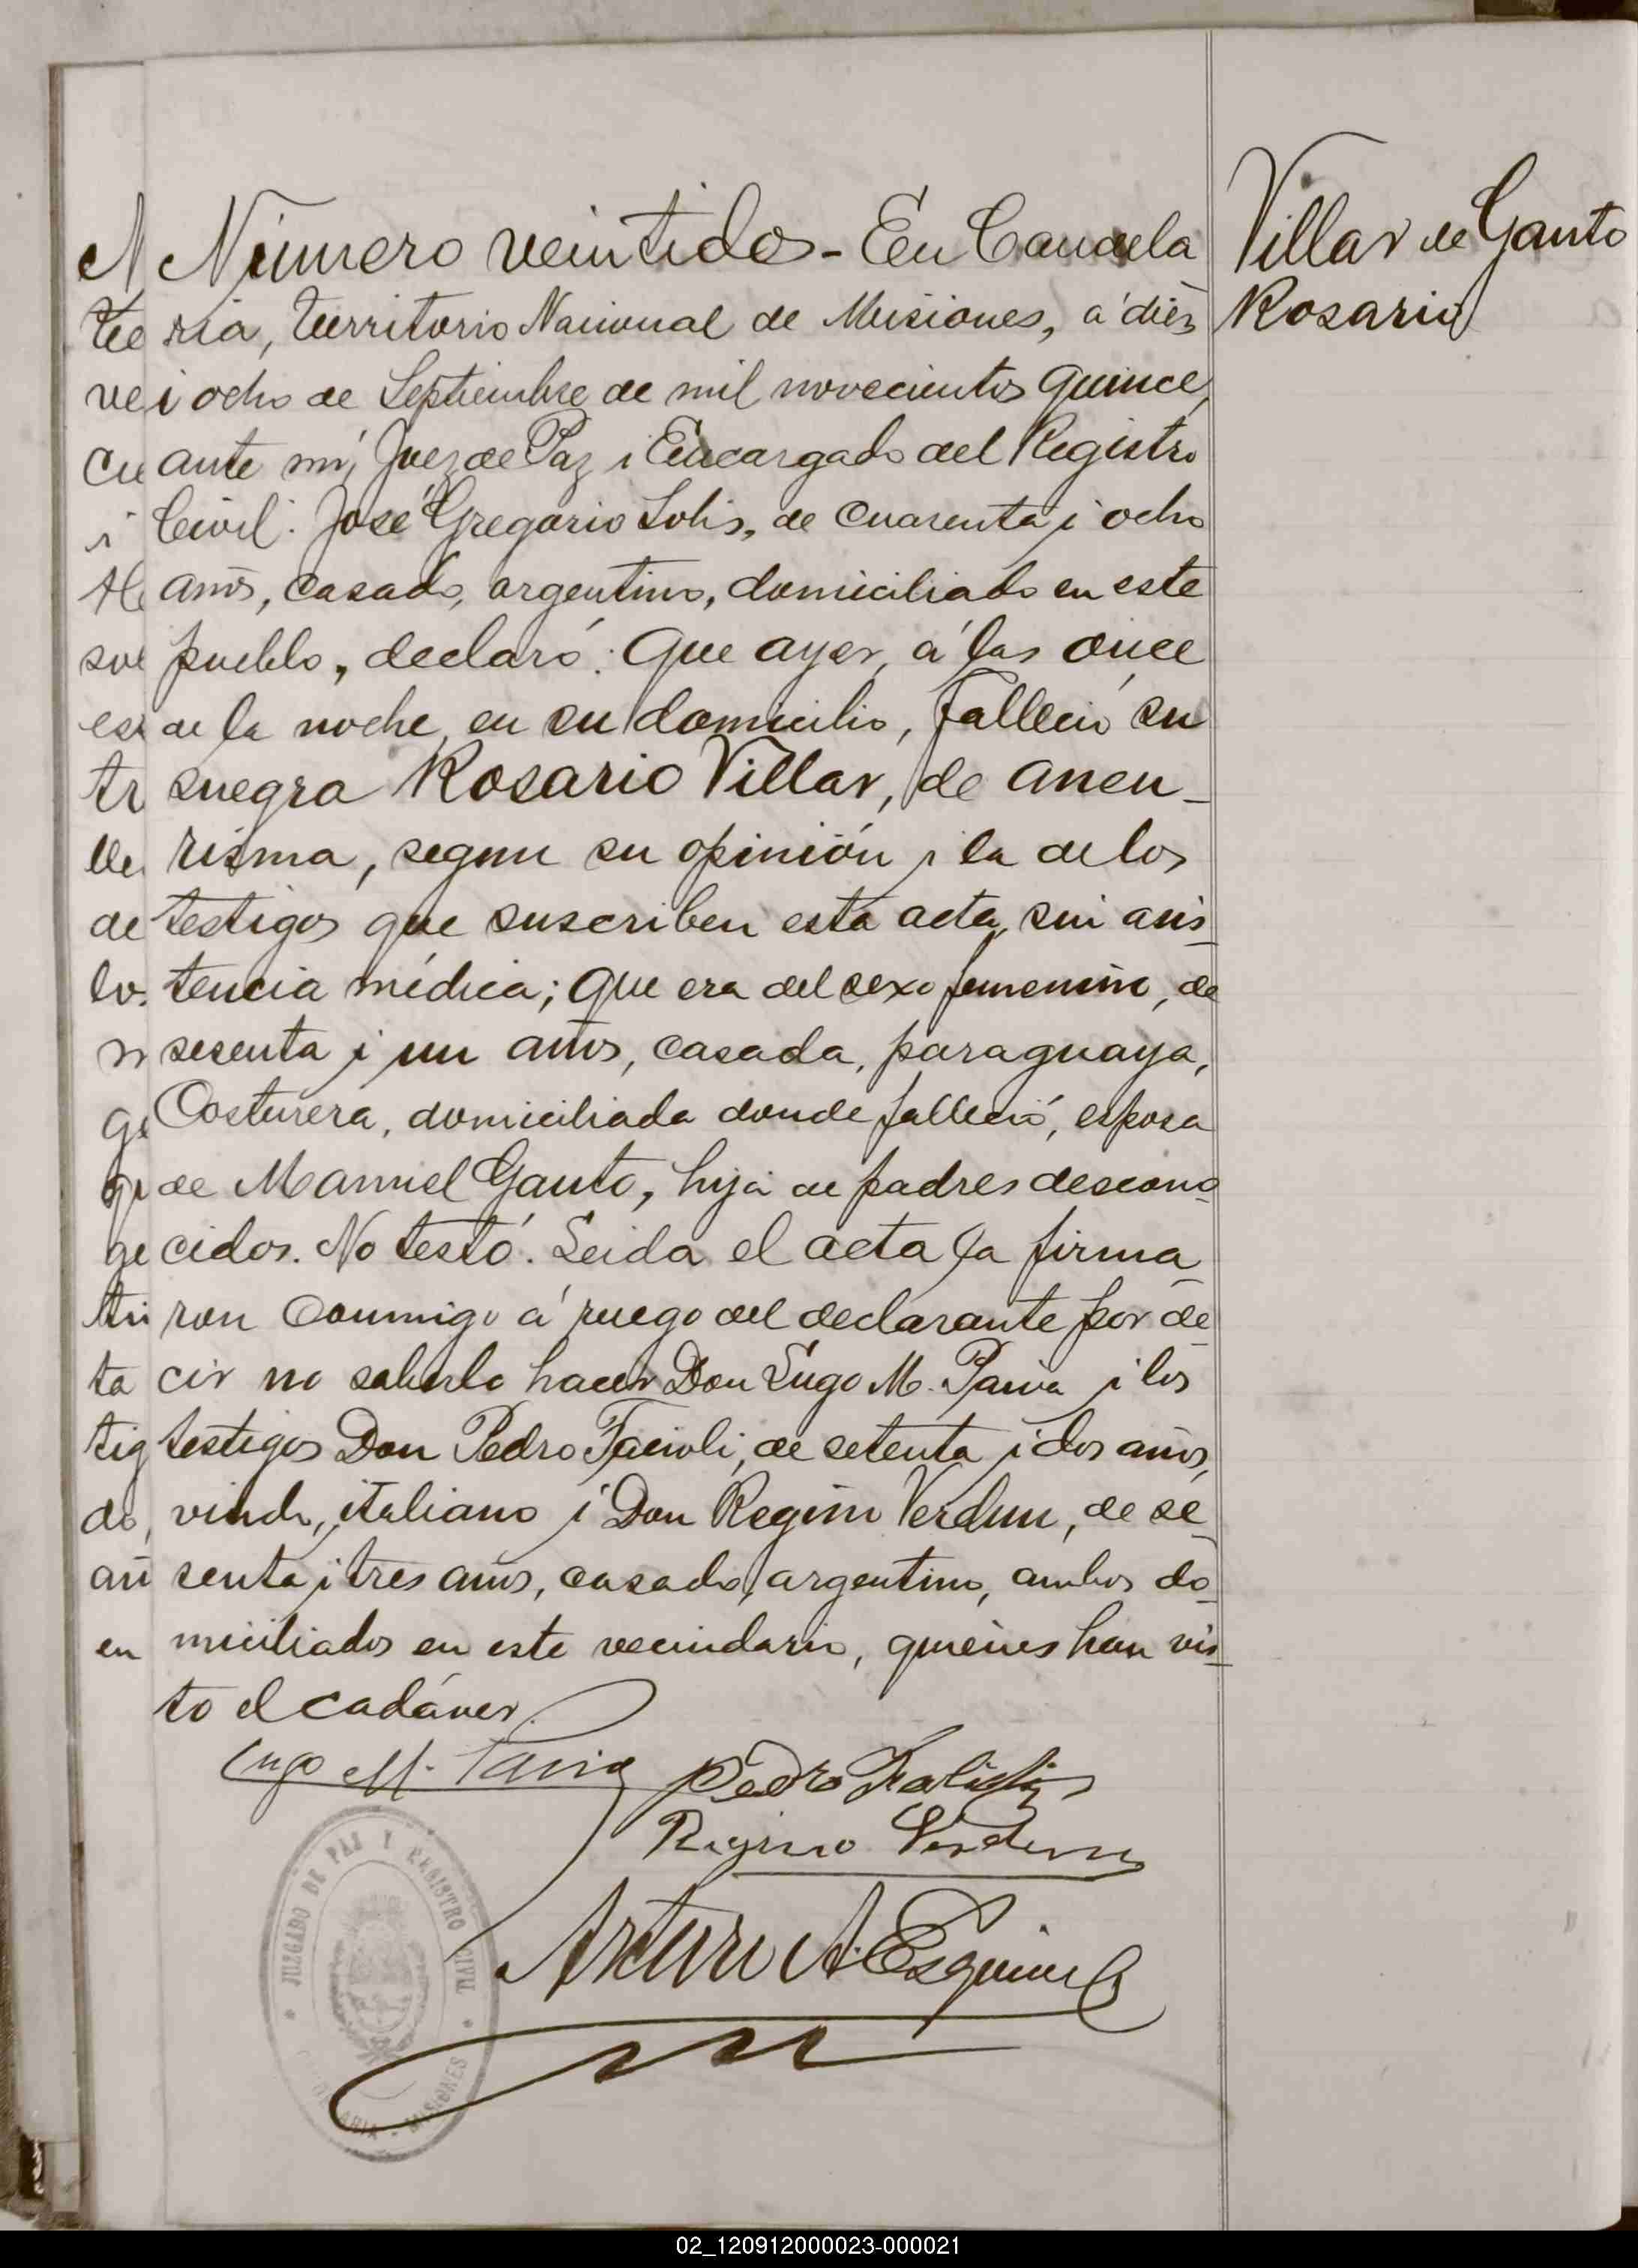 Villar de Gauto
Rosario
Número veintidos - En Candela
ria, territorio Nacional de Misiones, á diez
i ocho de Septiembre de mil novecientos quince,
ante mí, Juez de Paz i Encargado del Registro
Civil: José Gregorio Solis, de cuarenta i ocho
años, casado, argentino, domiciliado en este
pueblo, declaró: Que ayer, á las once
de la noche, en su domicilio, falleció su
suegra Rosario Villar, de aneu-
risma, segun su opinión i la de los
testigos que suscriben esta acta, sin asis-
tencia médica; que era del sexo femenino, de
sesenta i un años, casada, paraguaya,
Costurera, domiciliada donde falleció, esposa
de Manuel Gauto, hija de padres descono-
cidos. No testó. Leida el acta la firma-
ron conmigo á ruego del declarante por de-
cir no saberlo hacer Don Lugo M. Paiva i los
testigos Don Pedro Facioli, de setenta i dos años,
viudo, italiano i Don Regino Verdun, de se-
senta i tres años, casado, argentino, ambos do-
miciliados en este vecindario, quienes han vis-
to el cadáver.
Lugo M. Paiva Pedro
Regino Verdun
Arturo A. Esquivel
JUZGADO DE PAZ Y REGISTRO CIVIL
CANDELARIA - MISIONES
02_120912000023-000021